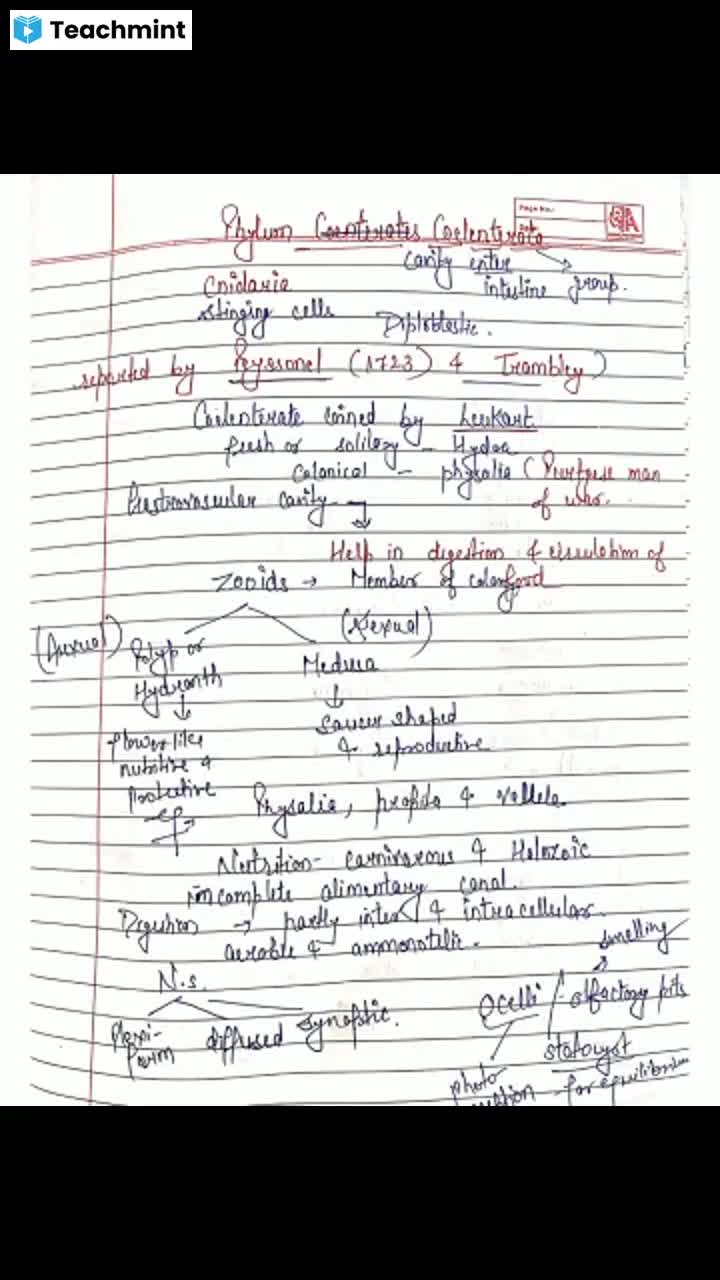 Teachmint
PAGE NO.:
Phylum Coenterates Coelenterata
Cavity enter
Cnidaria intestine group.
stinging cells
Diploblastic.
reported by Peyssonel (1723) & Trambley)
Coelenterate coined by Leukart
fresh or solitary - Hydra
Colonical - physalia (Pourtgese man
of war.
Gastrovascular cavity
Help in digestion & circulation of
food
Zooids → Member of colony
(Asexual) (Sexual)
Polyp or Medusa
Hydranth
Saucer shaped
& reproductive
flower like
nutritive &
Protective
Physalia, porpita & vellela
Nutrition - carnivorous & Holozoic
incomplete alimentary canal.
Digestion → partly inter & intracellular.
aerobic & ammonotelic.
smelling
N.s.
Ocelli olfactory pits
Plexi-
form diffused synaptic.
statocyst
photo for equilibrium